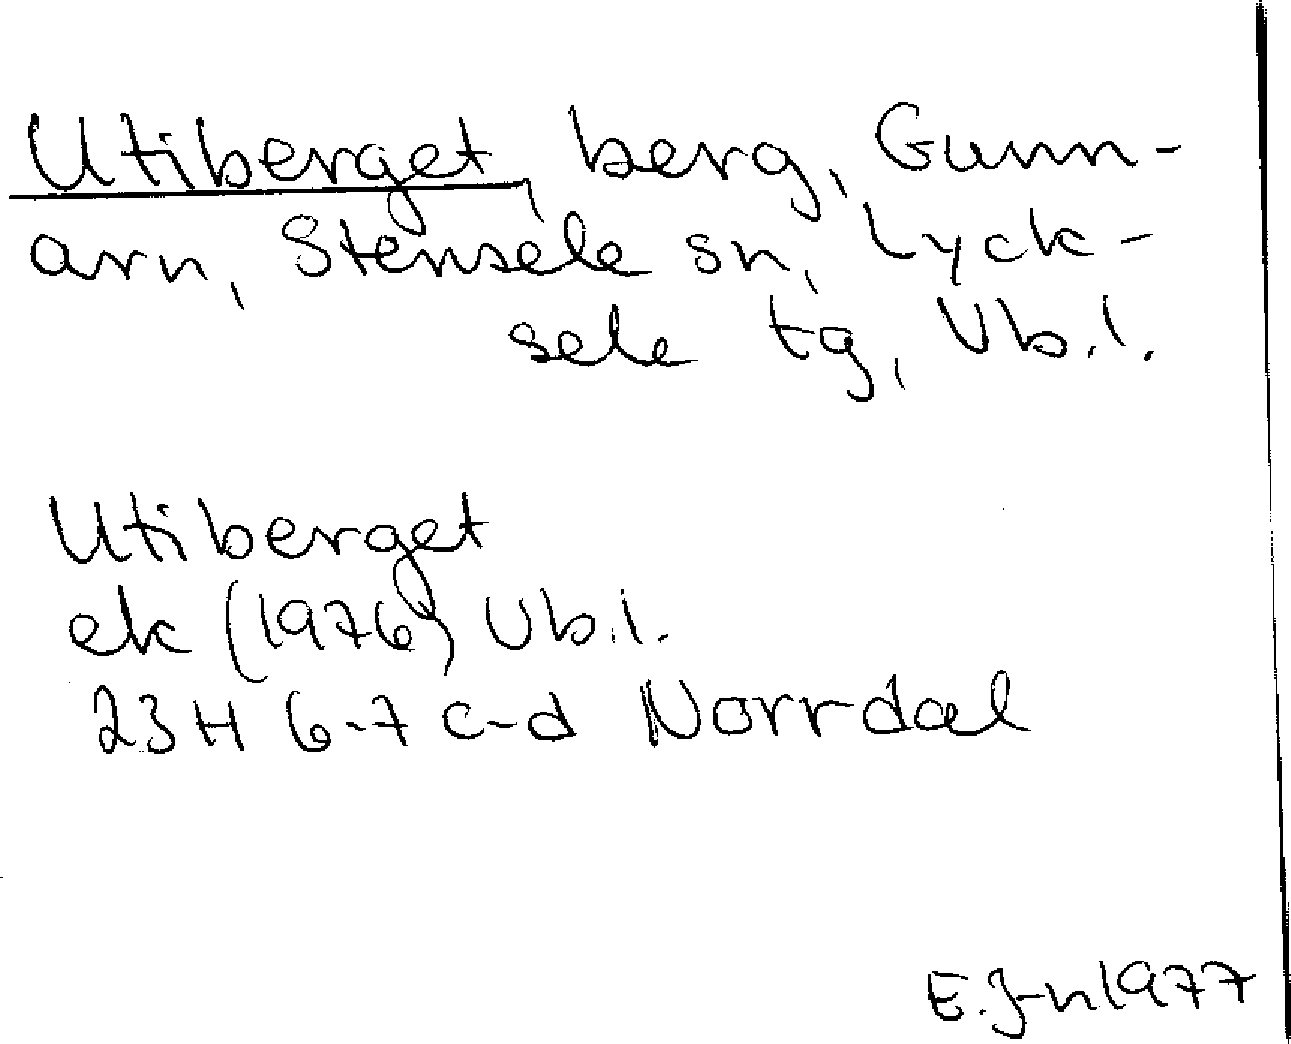 Utiberget, berg, Gunn-
arn, Stensele sn, Lyck-
sele tg, Vb.l.
Utiberget
ek (1976) Vb.l.
23H 6-7 c-d Norrdal
E.J-n 1977